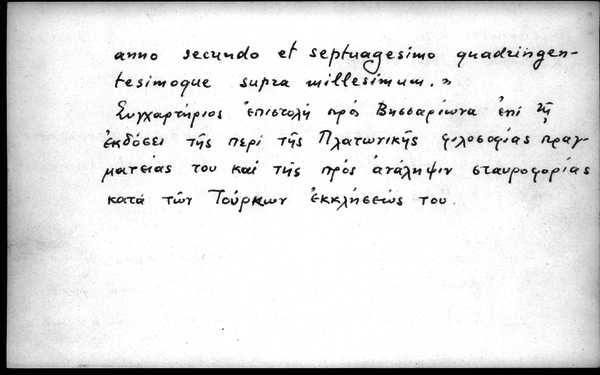 anno secundo et septuagesimo quadringen-
tesimoque supra millesimum.»
Συγχαρτήριος ἐπιστολή πρός Βησσαρίωνα ἐπί τῇ
ἐκδόσει τῆς περί τῆς Πλατωνικῆς φιλοσοφίας πραγ-
ματείας του καί τῆς πρός ἀνάληψιν σταυροφορίας
κατά τῶν Τούρκων ἐκκλήσεώς του.